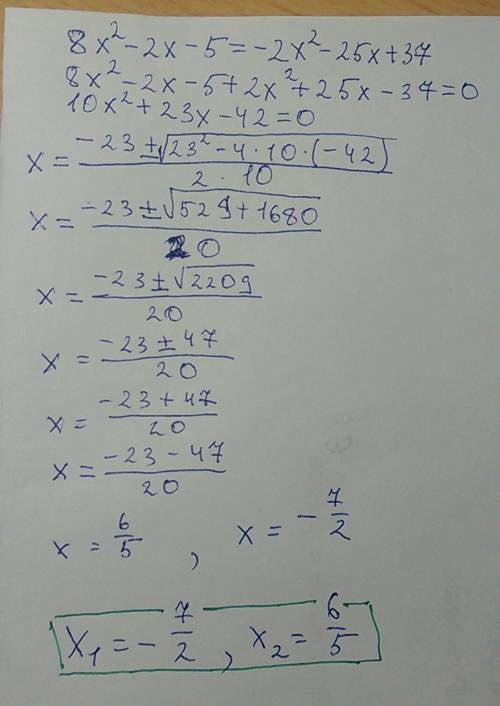 8x² - 2x - 5 = -2x² - 25x + 37
8x² - 2x - 5 + 2x² + 25x - 37 = 0
10x² + 23x - 42 = 0
x = (-23 ± √(23² - 4 · 10 · (-42))) / (2 · 10)
x = (-23 ± √(529 + 1680)) / 20
x = (-23 ± √2209) / 20
x = (-23 ± 47) / 20
x = (-23 + 47) / 20
x = (-23 - 47) / 20
x = 6/5 , x = -7/2
x₁ = -7/2 , x₂ = 6/5